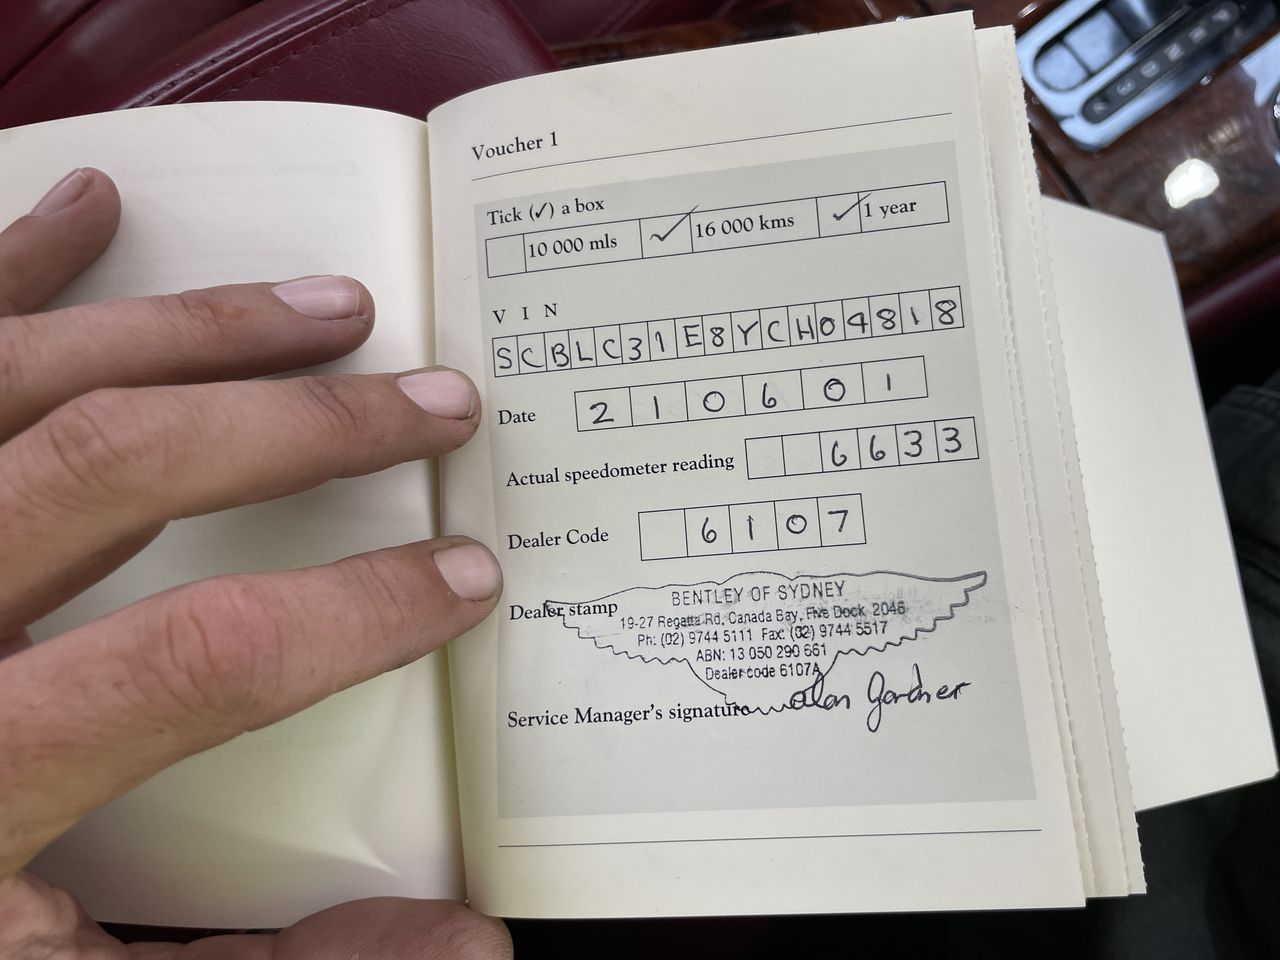 Voucher 1
Tick (✓) a box
10 000 mls ✓ 16 000 kms ✓ 1 year
V I N
SCBLC31E8YCH04818
Date 210601
Actual speedometer reading 6633
Dealer Code 6107
Dealer stamp
BENTLEY OF SYDNEY
19-27 Regatta Rd. Canada Bay, Five Dock 2046
Ph: (02) 9744 5111 Fax: (02) 9744 5517
ABN: 13 050 290 661
Dealer code 6107A
Service Manager's signature alan Gardner